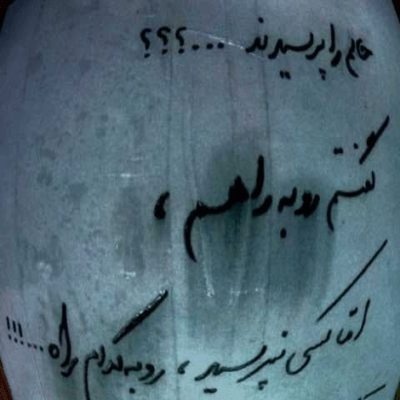 حالم را پرسیدند ...؟؟؟
گفتم رو به راهم ،
اما کسی نپرسید ، رو به کدام راه ...!!!